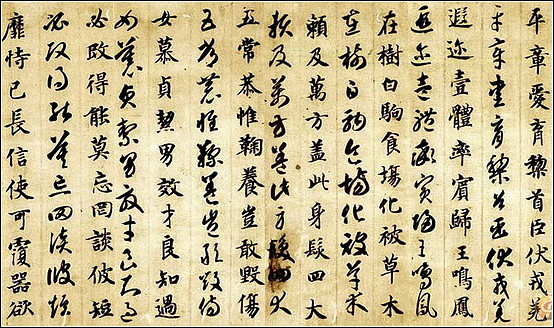 平章愛育黎首臣伏戎羌
平章愛育黎首臣伏戎羌
遐迩壹體率賓歸王鳴鳳
遐迩壹體率賓歸王鳴鳳
在樹白駒食場化被草木
在樹白駒食場化被草木
賴及萬方盖此身髮四大
賴及萬方盖此身髮四大
五常恭惟鞠養豈敢毀傷
五常恭惟鞠養豈敢毀傷
女慕貞絜男效才良知過
女慕貞絜男效才良知過
必改得能莫忘罔談彼短
必改得能莫忘罔談彼短
靡恃己長信使可覆器欲